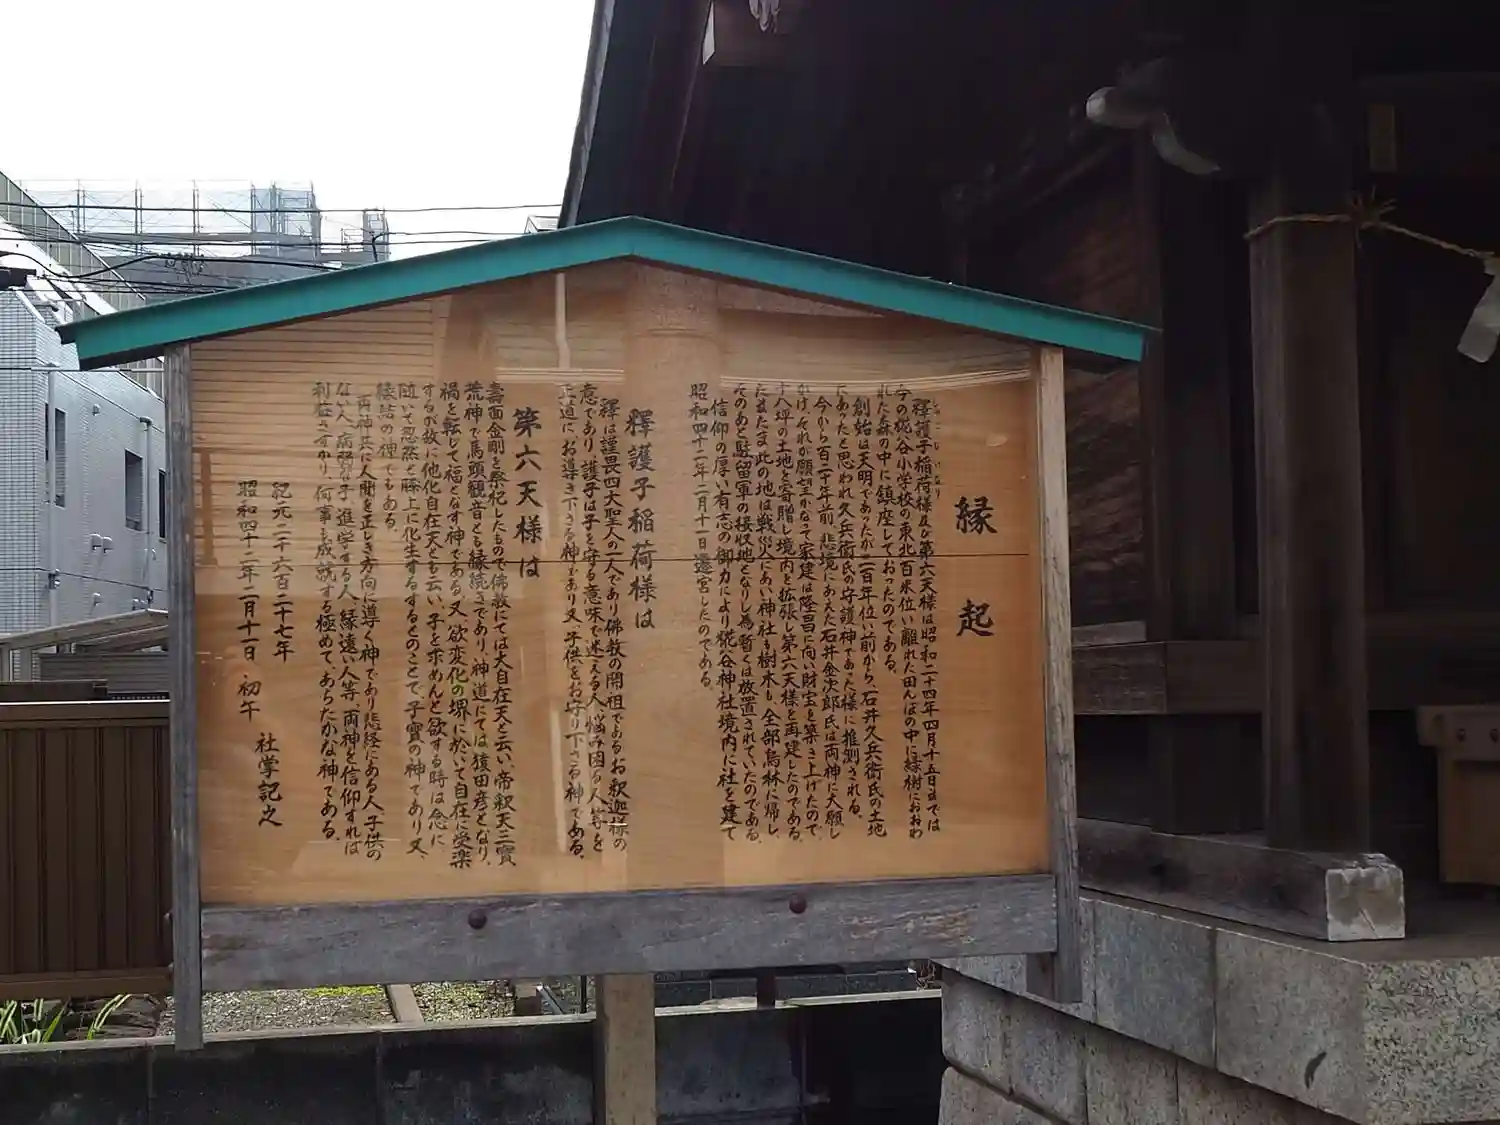 縁起
釋護子稲荷様及び第六天様は昭和二十四年四月十五日までは
しゃごし いなり
今の糀谷小学校の東北百米位い離れた田んぼの中に緑樹におおわ
れた森の中に鎮座しておったのである。
創始は天明であったか二百年位い前から、石井久兵衛氏の土地
にあったと思われ久兵衛氏の守護神であった様に推測される。
今から百二十年前、悲境にあえた石井金次郎氏は両神に大願し
かけ、それが願望かなって家建は隆昌に向い財宝を築き上げたので、
十八坪の土地を寄贈し境内を拡張し第六天様を再建したのである。
たまたま此の地は戦災にあい神社も樹木も、全部烏林に帰し、
そのあと駐留軍の接収地となりし為暫くは放置されていたのである。
信仰の厚い有志の御力により糀谷神社境内に社を建て
昭和四十二年二月十一日遷宮したのである。
釋護子稲荷様は
釋は謹畏四大聖人の一人であり佛教の開祖であるお釈迦様の
意であり、護子は子を守る意味で迷える人、悩み困る人等を
正道にお導き下さる神であり又、子供をお守り下さる神である。
第六天様は
壽面金剛を祭祀したもので佛教にては大自在天と云い、帝釈天三寳
荒神で馬頭観音とも縁続きであり、神道にては猿田彦となり、
禍を転じて福となす神である。又、欲変化の堺に於いて自在に受楽
するが故に他化自在天とも云い、子を求めんと欲する時は念に、
随いて忽然と膝上に化生するするとのことで、子寳の神であり又、
縁結の神でもある。
両神共に人間を正しき方向に導く神であり悲経にある人、子供の
ない人、病弱な子、進学する人、縁遠い人等、両神を信仰すれば
利益さずかり、何事も成就する極めて、あらたかな神である。
紀元二千六百二十七年
昭和四十二年二月十一日 初午 社掌記之